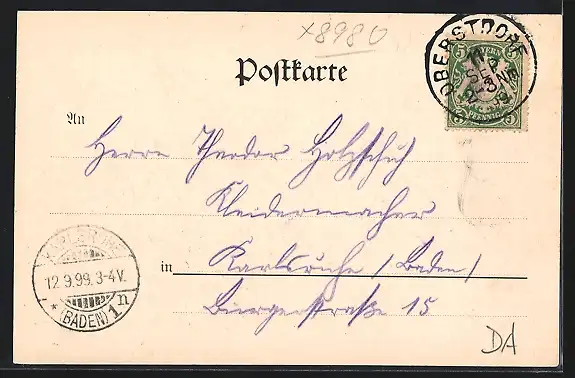 x8980
OBERSTDORF
5 BAYERN 5
PFENNIG
Postkarte
An
Herrn Theodor Holzschuh
Kleidermacher
in Karlsruhe (Baden)
Bürgerstraße 15
KARLSRUHE
12.9.99.3-4V.
* (BADEN) 1n
DA